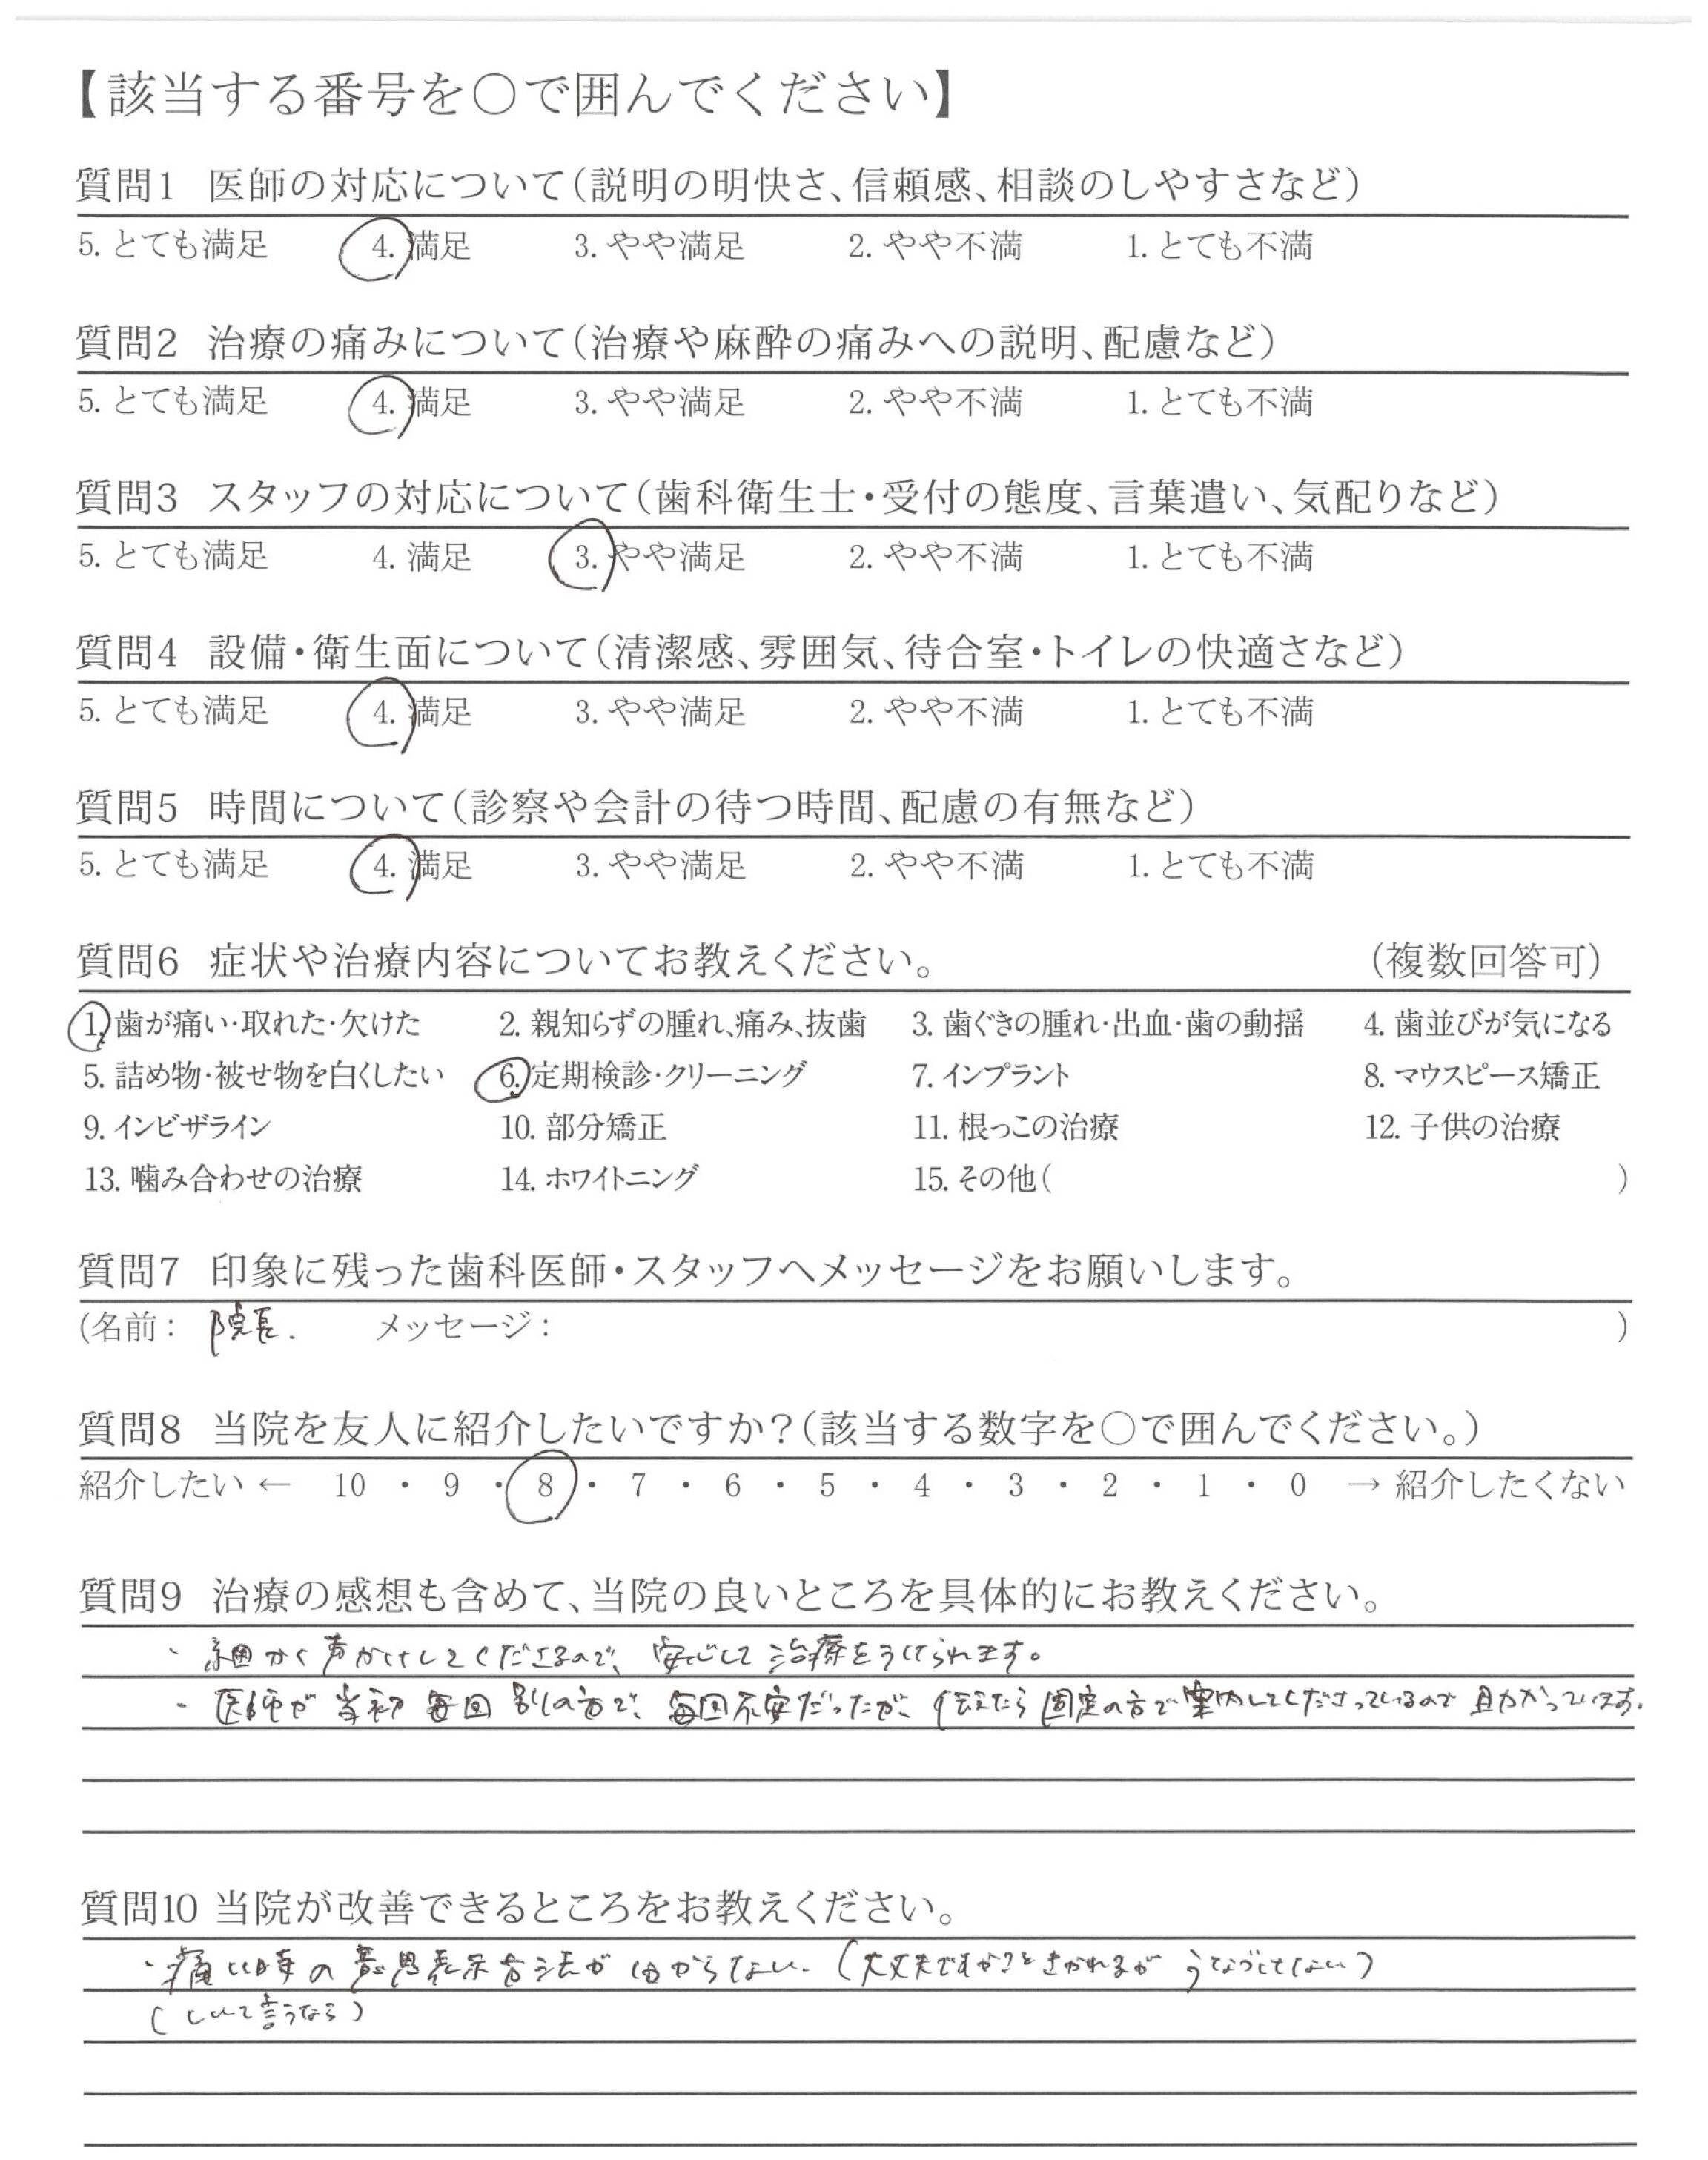 【該当する番号を○で囲んでください】
質問1 医師の対応について(説明の明快さ、信頼感、相談のしやすさなど)
5. とても満足 4. 満足 3. やや満足 2. やや不満 1. とても不満
質問2 治療の痛みについて(治療や麻酔の痛みへの説明、配慮など)
5. とても満足 4. 満足 3. やや満足 2. やや不満 1. とても不満
質問3 スタッフの対応について(歯科衛生士・受付の態度、言葉遣い、気配りなど)
5. とても満足 4. 満足 3. やや満足 2. やや不満 1. とても不満
質問4 設備・衛生面について(清潔感、雰囲気、待合室・トイレの快適さなど)
5. とても満足 4. 満足 3. やや満足 2. やや不満 1. とても不満
質問5 時間について(診察や会計の待つ時間、配慮の有無など)
5. とても満足 4. 満足 3. やや満足 2. やや不満 1. とても不満
質問6 症状や治療内容についてお教えください。 (複数回答可)
1. 歯が痛い・取れた・欠けた 2. 親知らずの腫れ、痛み、抜歯 3. 歯ぐきの腫れ・出血・歯の動揺 4. 歯並びが気になる
5. 詰め物・被せ物を白くしたい 6. 定期検診・クリーニング 7. インプラント 8. マウスピース矯正
9. インビザライン 10. 部分矯正 11. 根っこの治療 12. 子供の治療
13. 噛み合わせの治療 14. ホワイトニング 15. その他( )
質問7 印象に残った歯科医師・スタッフへメッセージをお願いします。
(名前: 院長. メッセージ: )
質問8 当院を友人に紹介したいですか?(該当する数字を○で囲んでください。)
紹介したい ← 10 ・ 9 ・ 8 ・ 7 ・ 6 ・ 5 ・ 4 ・ 3 ・ 2 ・ 1 ・ 0 → 紹介したくない
質問9 治療の感想も含めて、当院の良いところを具体的にお教えください。
・細かく声かけしてくださるので、安心して治療をうけられます。
・医師が当初毎回別の方で、毎回不安だったが、伝えたら固定の方で案内してくださっているので助かっています。
質問10 当院が改善できるところをお教えください。
・痛い時の意思表示方法がわからない.(大丈夫ですか?ときかれるがうなづけない)
(しいて言うなら)